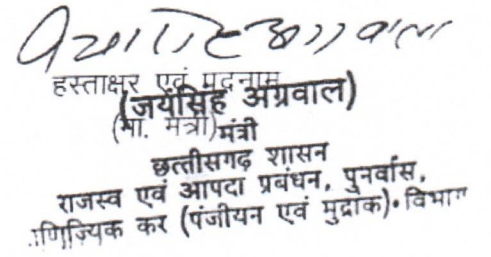 जयसिंह अग्रवाल
हस्ताक्षर एवं पदनाम
(जयसिंह अग्रवाल)
(मा. मंत्री) मंत्री
छत्तीसगढ़ शासन
राजस्व एवं आपदा प्रबंधन, पुनर्वास,
णिज्यिक कर (पंजीयन एवं मुद्रांक) • विभाग